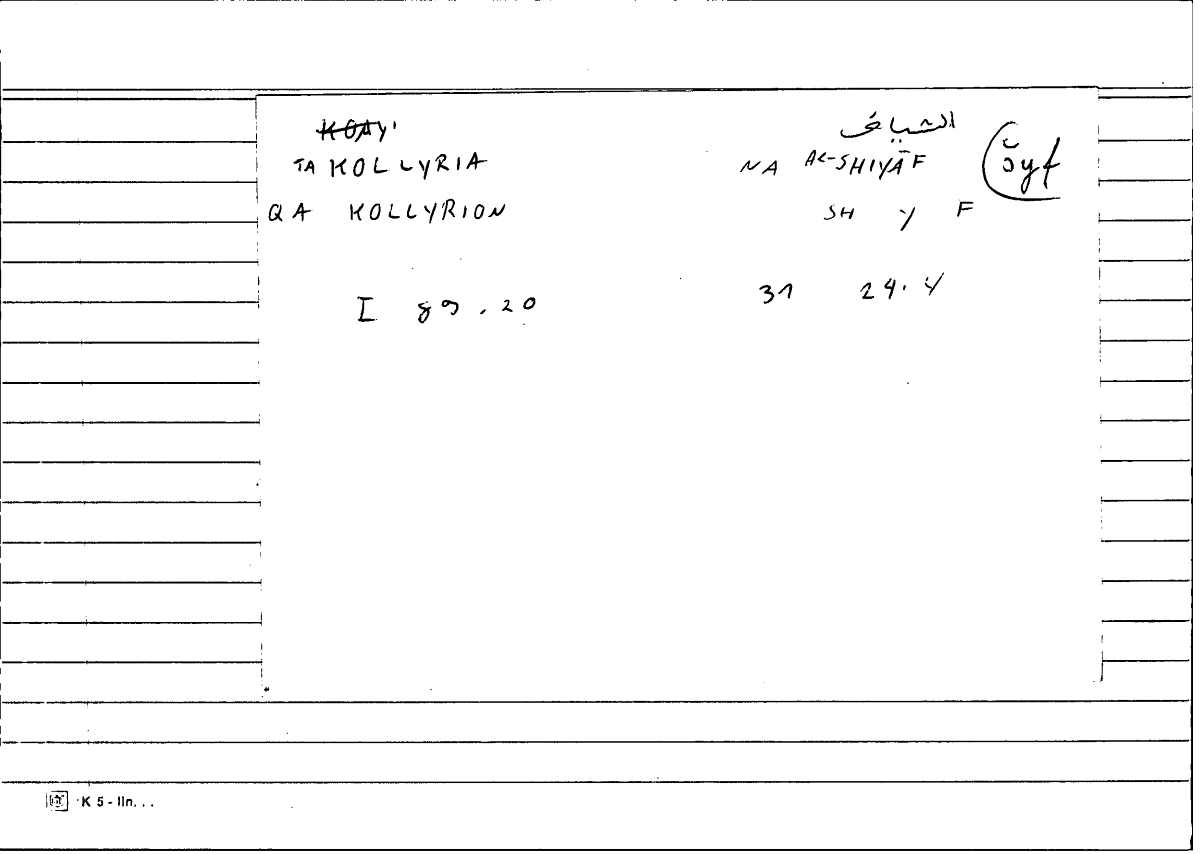 الشياف
TA KOLLYRIA NA AL-SHIYĀF šyf
QA KOLLYRION SH Y F
I 89.20 31 24.4
K 5 - IIn...